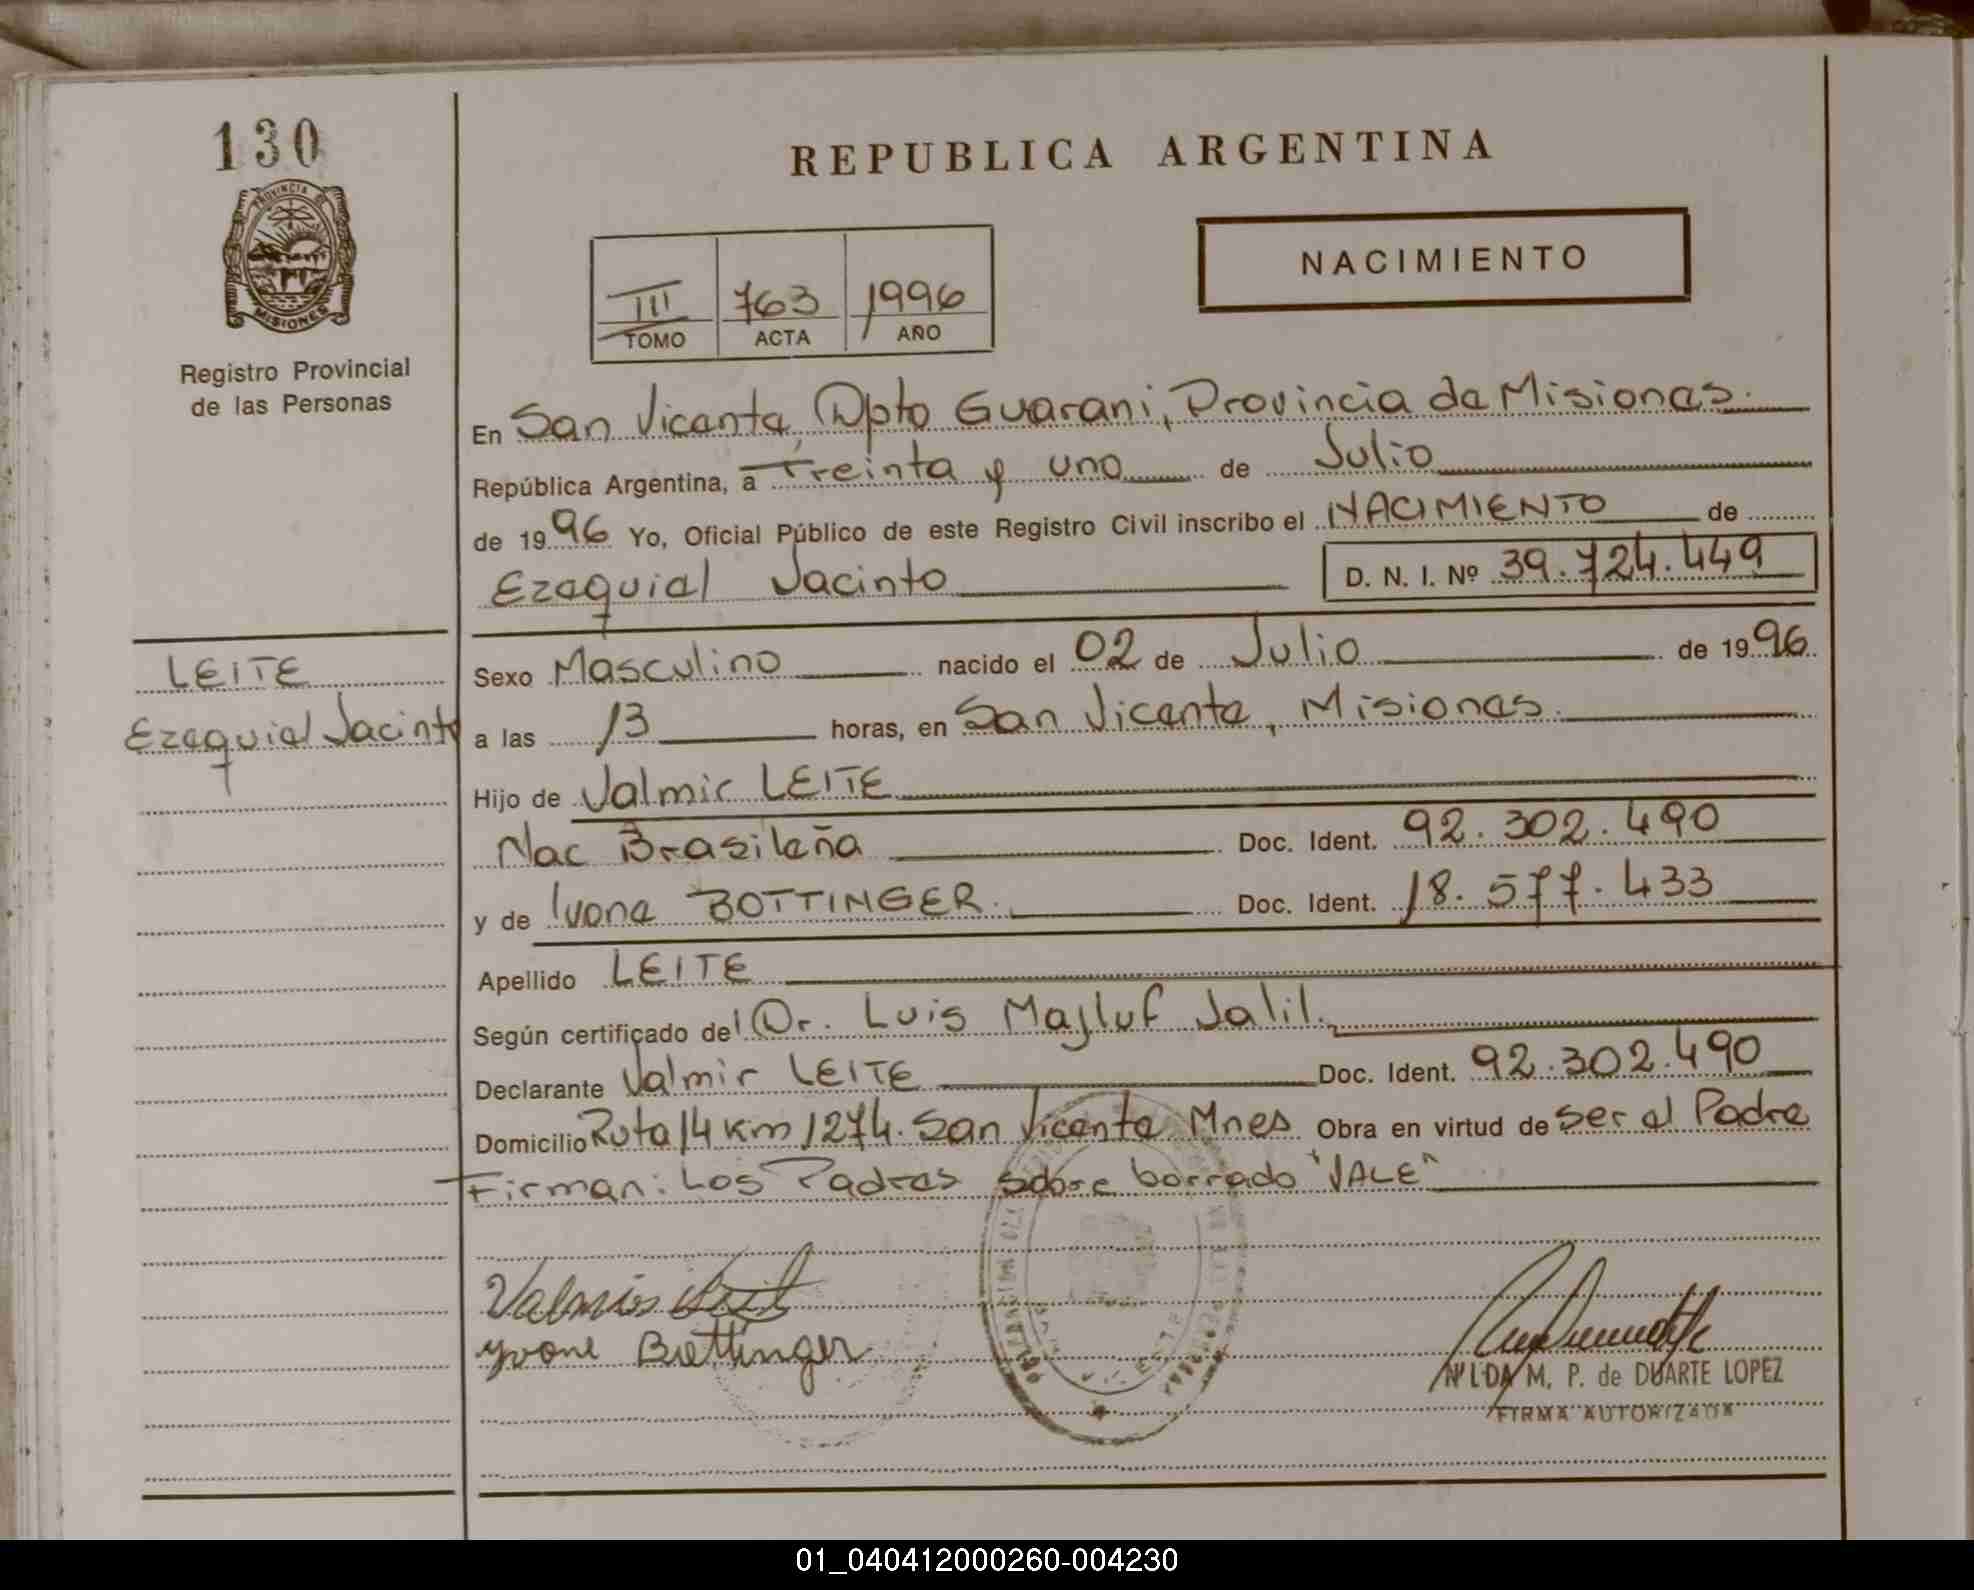 130
PROVINCIA DE
MISIONES
Registro Provincial
de las Personas
REPUBLICA ARGENTINA
NACIMIENTO
III 763 1996
TOMO ACTA AÑO
En San Vicente, Dpto Guarani, Provincia de Misiones.
República Argentina, a Treinta y uno de Julio
de 1996 Yo, Oficial Público de este Registro Civil inscribo el NACIMIENTO de
Ezequiel Jacinto D. N. I. Nº 39.724.449
LEITE
Ezequiel Jacinto
Sexo Masculino nacido el 02 de Julio de 1996
a las 13 horas, en San Vicente, Misiones.
Hijo de Valmir LEITE
Nac Brasileña Doc. Ident. 92.302.490
y de Ivone BOTTINGER. Doc. Ident. 18.577.433
Apellido LEITE
Según certificado del Dr. Luis Majluf Jalil.
Declarante Valmir LEITE Doc. Ident. 92.302.490
Domicilio Ruta 14 Km 1274. San Vicente Mnes Obra en virtud de ser el Padre
Firman: Los Padres sobre borrado "VALE"
Yvone Bottinger
NILDA M. P. de DUARTE LOPEZ
FIRMA AUTORIZADA
01_040412000260-004230